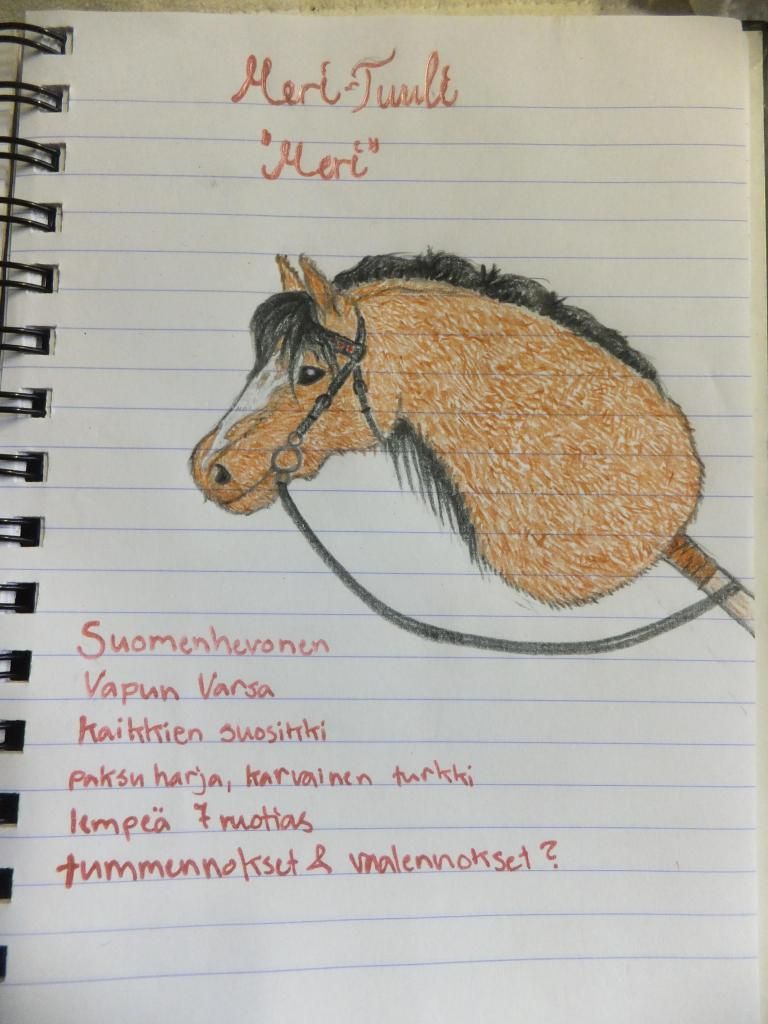 Meri-Tuuli
"Meri"
Suomenhevonen
Vapun Varsa
Kaikkien suosikki
paksu harja, karvainen turkki
lempeä 7 vuotias
tummennokset & vaalennokset?